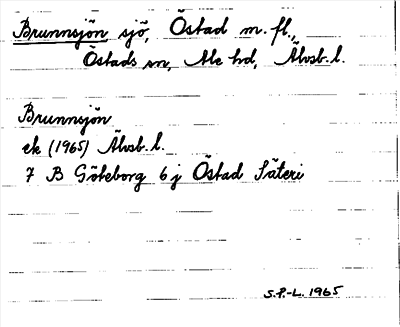 Brunnsjön sjö, Östad m.fl.,
Östads sn, Ale hd, Älvsb.l.
Brunnsjön
ek (1965) Älvsb.l.
7 B Göteborg 6 j Östad Säteri
S.P.-L. 1965